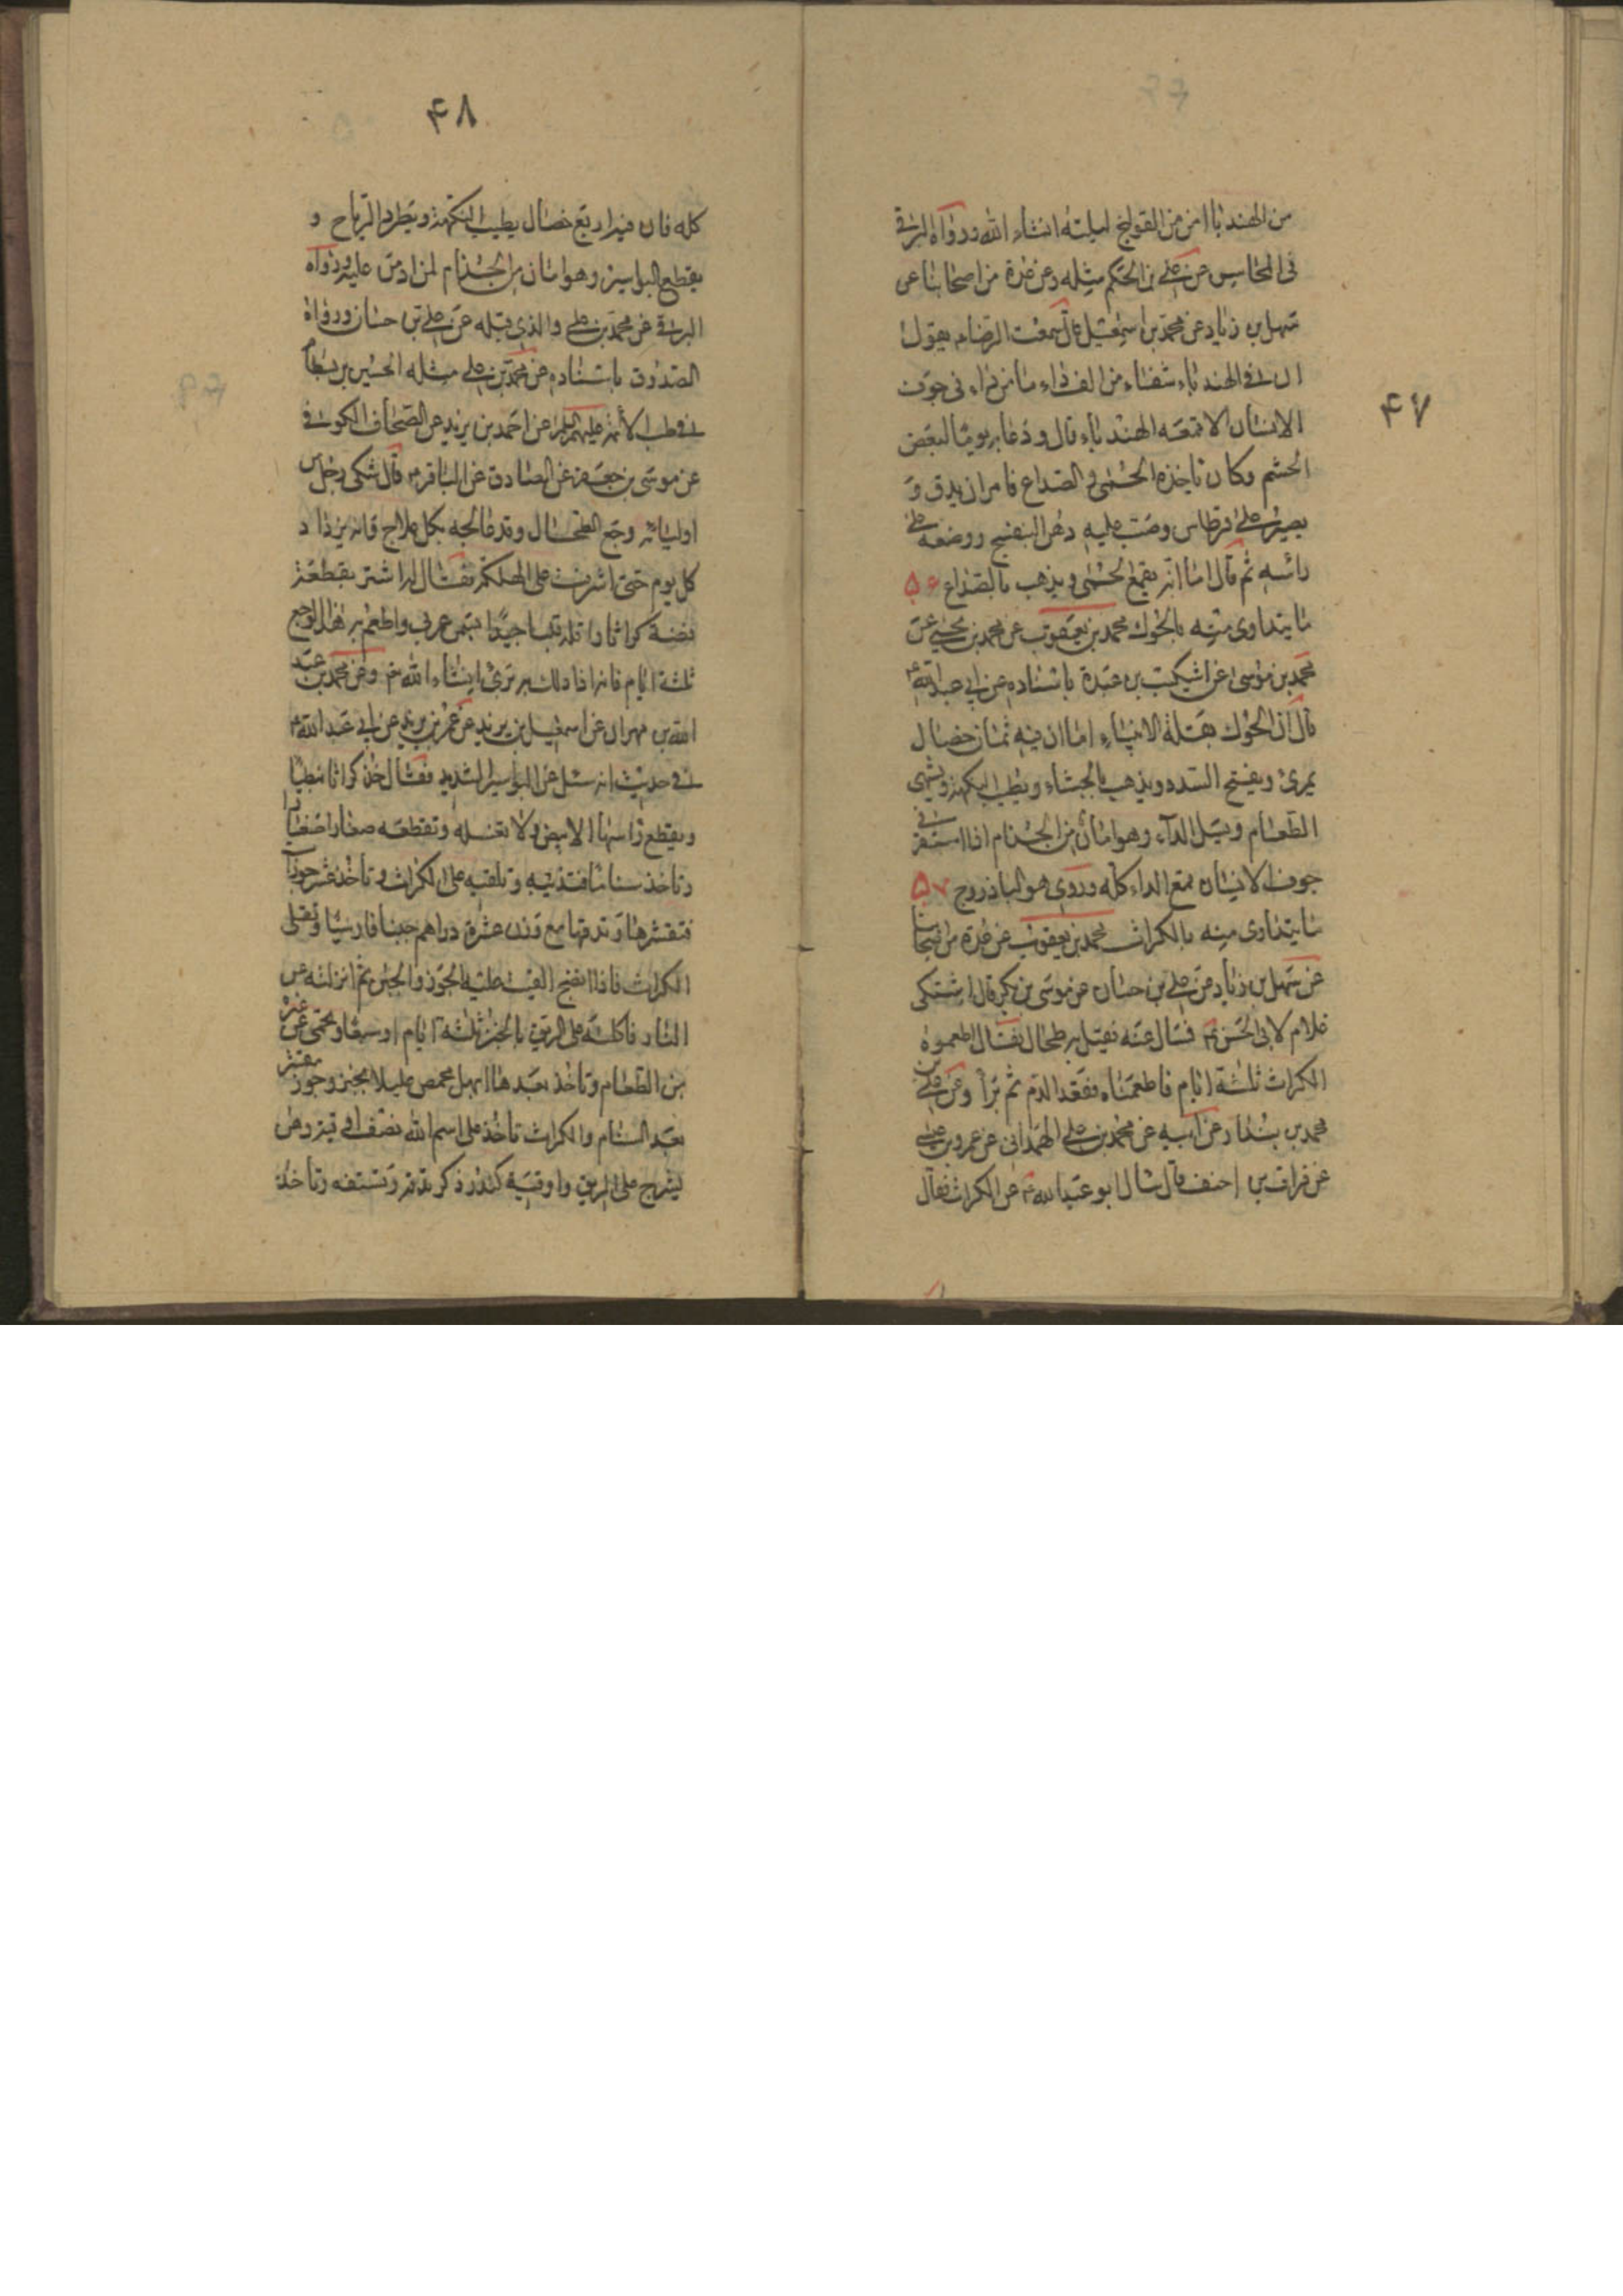 ۴۷
من الهندبا امن من القولنج ليلته انشاء الله ورواه البرقي
في المحاسن عن علي بن الحكم مثله وعن عدة من اصحابنا عن
سهل بن زياد عن محمد بن اسمعيل قال سمعت الرضا ع يقول
ان في الهندباء شفاء من الف داء ما من داء في جوف
الانسان الا قمعه الهندباء قال ودعا به يوما لبعض
الحشم وكان تاخذه الحمى و الصداع فامر ان يدق و
يصير على قرطاس وصب عليه دهن البنفسج ووضعه على
راسه ثم قال اما انه يقمع الحمى ويذهب بالصداع ۵۶
ما يتداوى منه بالحوك محمد بن يعقوب عن محمد بن يحيى عن
محمد بن موسى عن اشكيب بن عبدة باسناده عن ابي عبد الله ع
قال ان الحوك بقلة الانبياء اما ان فيه ثمان خصال
يمرئ ويفتح السدد ويذهب بالجشاء ويطيب النكهة ويشهي
الطعام ويسل الداء وهو امان من الجذام اذا استقر في
جوف الانسان قمع الداء كله وروي هو الباذروج ۵۷
ما يتداوى منه بالكراث محمد بن يعقوب عن عدة من اصحابنا
عن سهل بن زياد عن علي بن حسان عن موسى بن بكر قال اشتكى
غلام لابي الحسن ع فسال عنه فقيل به طحال فقال اطعموه
الكراث ثلثة ايام فاطعمناه فقعد الدم ثم برأ وعن علي بن
محمد بن بندار عن ابيه عن محمد بن علي الهمداني عن عمرو بن عيسى
عن فرات بن احنف قال سال ابو عبد الله ع عن الكراث فقال
۴۸
كله فان فيه اربع خصال يطيب النكهة ويطرد الرياح و
يقطع البواسير وهو امان من الجذام لمن ادمن عليه ورواه
البرقي عن محمد بن علي والذي قبله عن علي بن حسان ورواه
الصدوق باسناده عن محمد بن علي مثله الحسين بن بسطام
في طب الائمة عليهم السلام عن احمد بن يزيد عن الصحاف الكوفي
عن موسى بن جعفر عن الصادق عن الباقر ع قال شكى رجل من
اوليائه وجع الطحال وقد عالجه بكل علاج وانه يزداد
كل يوم حتى اشرف على الهلكة فقال له اشتر بقطعة
فضة كراثا واقله قليا جيدا بسمن عربي واطعم به هذا الوجع
ثلثة ايام فانه اذا فعل ذلك برئ انشاء الله تع وعن محمد بن عبد
الله بن مهران عن اسمعيل بن يزيد عن عمر بن يزيد عن ابي عبد الله ع
في حديث انه سئل عن البواسير الشديد فقال خذ كراثا نبطيا
ويقطع راسها الابيض ولا تغسله وتقطعه صغارا صغارا
وتاخذ سناما فتذيبه وتلقيه على الكراث وتأخذ عشر جوزات
فتقشرها وتدقها مع وزن عشرة دراهم جبنا فارسيا وتغلى
الكراث فاذا نضج القيت عليه الجوز والجبن ثم انزلته عن
النار فاكلته على الريق بالخبز ثلثة ايام او سبعة وتحتمي عن غيره
من الطعام وتأخذ بعدها ابهل محمص قليلا بخبز وجوز مقشر
بعد السنام والكراث تأخذ على اسم الله نصف اوقية دهن
الشيرج على الريق واوقية كندر ذكر تدقه وتستفه وتأخذ